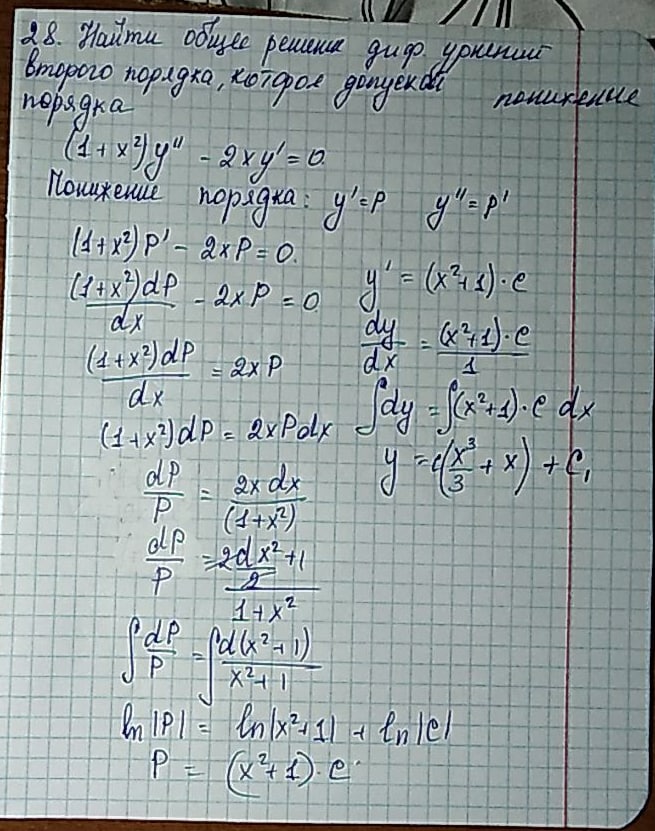 28. Найти общее решение диф. урнений
второго порядка, которое допускай понижение
порядка
(1 + x²) y'' - 2xy' = 0.
Понижение порядка: y' = P y'' = P'
(1+x²)P' - 2xP = 0.
(1+x²)dP/dx - 2xP = 0
(1+x²)dP/dx = 2xP
(1+x²)dP = 2xPdx
dP/P = 2x dx/(1+x²)
dP/P = 2dx²+1/2/1+x²
∫dP/P = ∫d(x²+1)/x²+1
ln|P| = ln|x²+1| + ln|C|
P = (x²+1)·C
y' = (x²+1)·C
dy/dx = (x²+1)·C/1
∫dy = ∫(x²+1)·C dx
y = C(x³/3 + x) + C₁